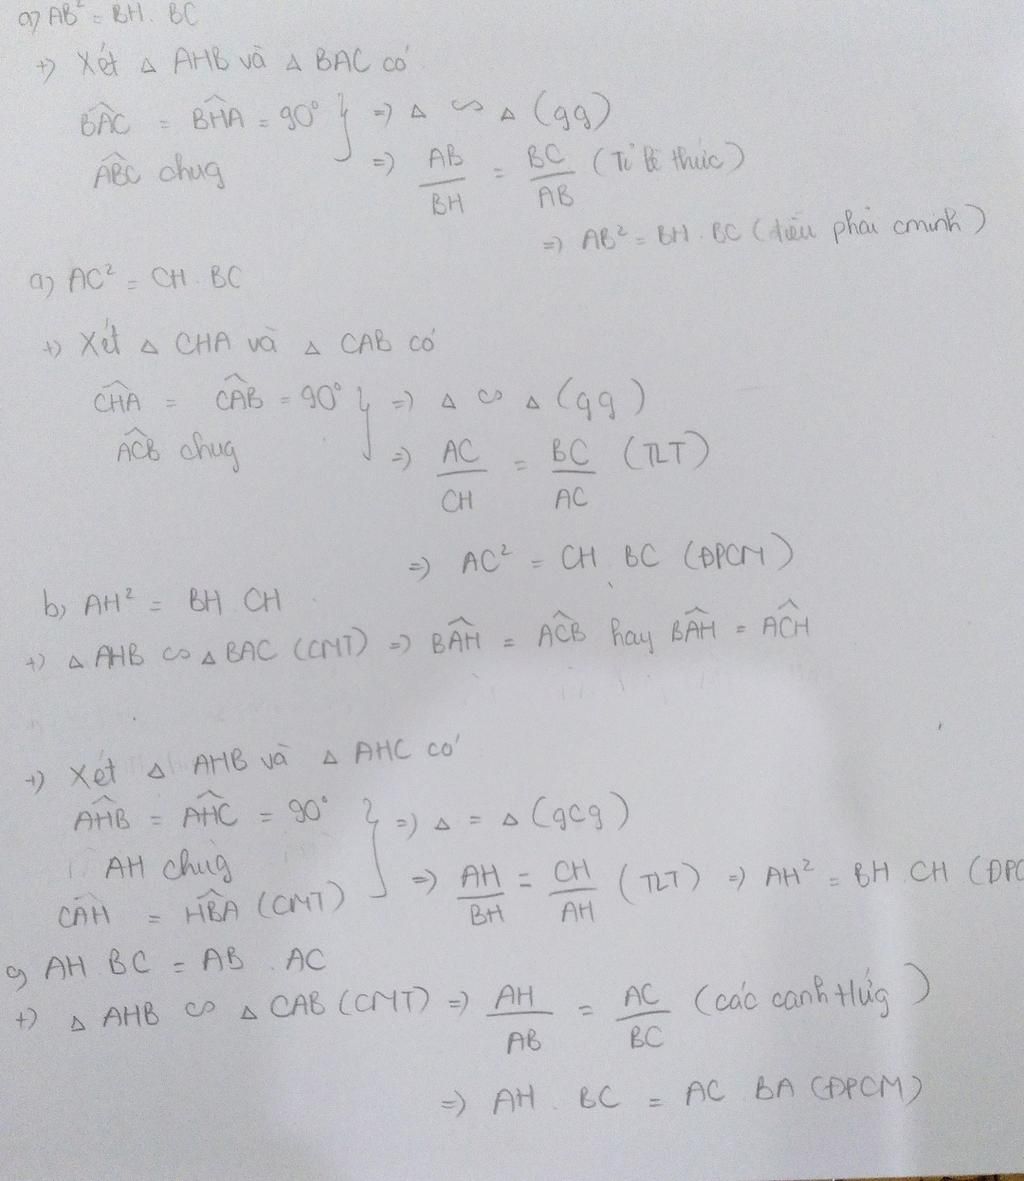 a) AB² = BH. BC
+) Xét △ AHB và △ BAC có
B̂AC = B̂HA = 90° } => △ ∽ △ (gg)
ÂBC chug => AB/BH = BC/AB (Tỉ lệ thức)
=> AB² = BH . BC (điều phải cminh)
a) AC² = CH . BC
+) Xét △ CHA và △ CAB có
ĈHA = ĈAB = 90° } => △ ∽ △ (gg)
ÂCB chug => AC/CH = BC/AC (TLT)
=> AC² = CH . BC (ĐPCM)
b, AH² = BH CH
+) △ AHB ∽ △ BAC (CMT) => BÂH = AĈB hay BÂH = AĈH
+) Xét △ AHB và △ AHC có
AĤB = AĤC = 90° } => △ = △ (gcg)
AH chug => AH/BH = CH/AH (TLT) => AH² = BH CH (ĐPC
CÂH = HB̂A (CMT)
c, AH BC = AB . AC
+) △ AHB ∽ △ CAB (CMT) => AH/AB = AC/BC (các cạnh tứg)
=> AH . BC = AC BA (ĐPCM)